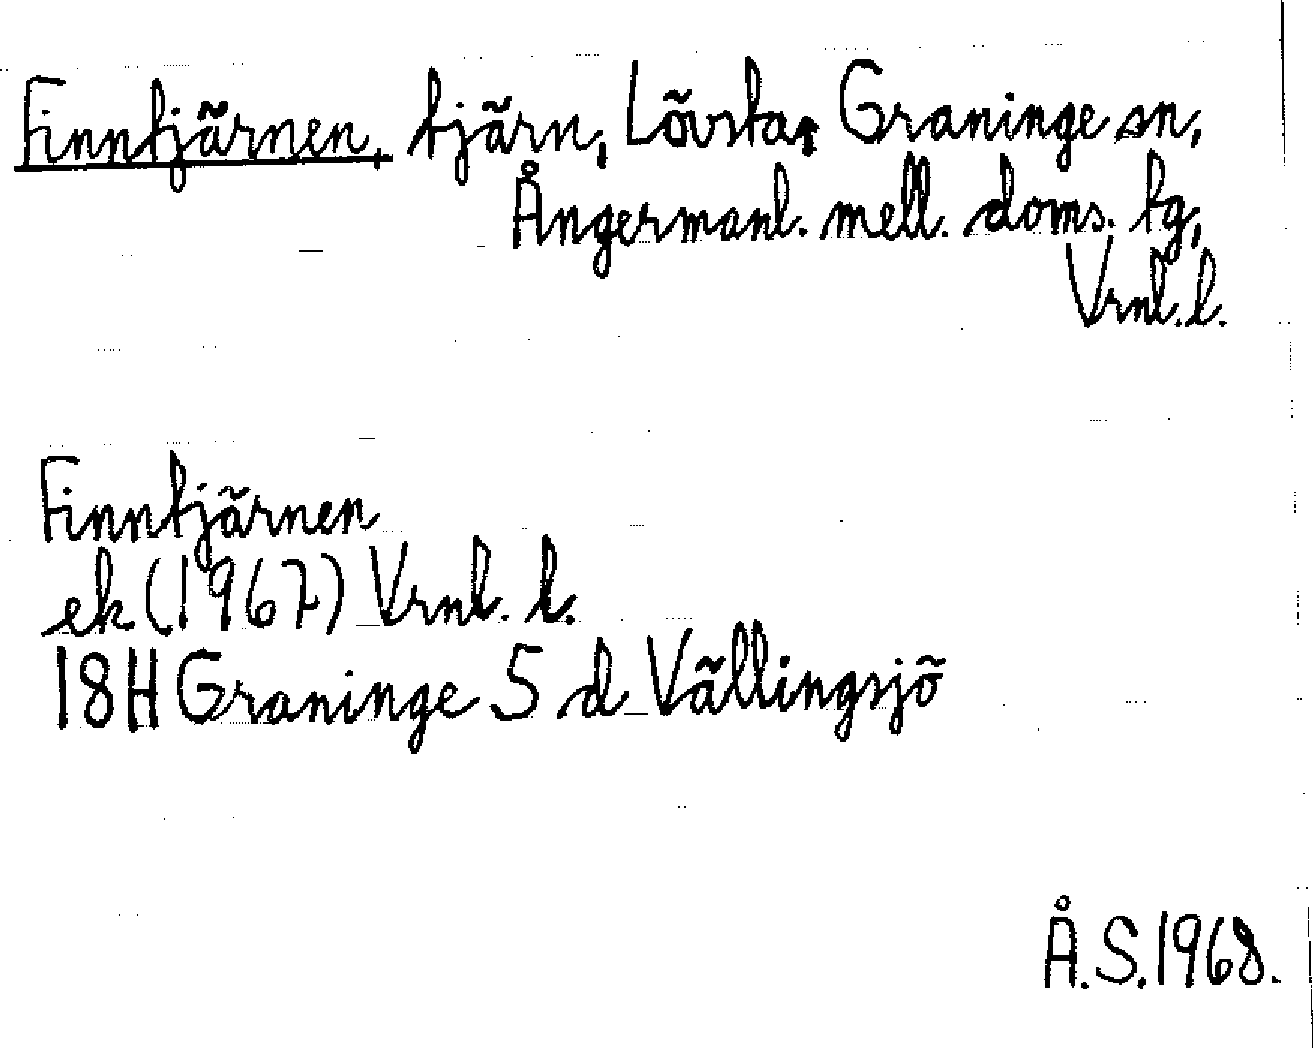 Finntjärnen, tjärn, Lövsta, Graninge sn,
Ångermanl. mell. doms. tg,
Vrnl. l.
Finntjärnen
ek (1967) Vrnl. l.
18H Graninge 5 d Vällingsjö
Å.S. 1968.